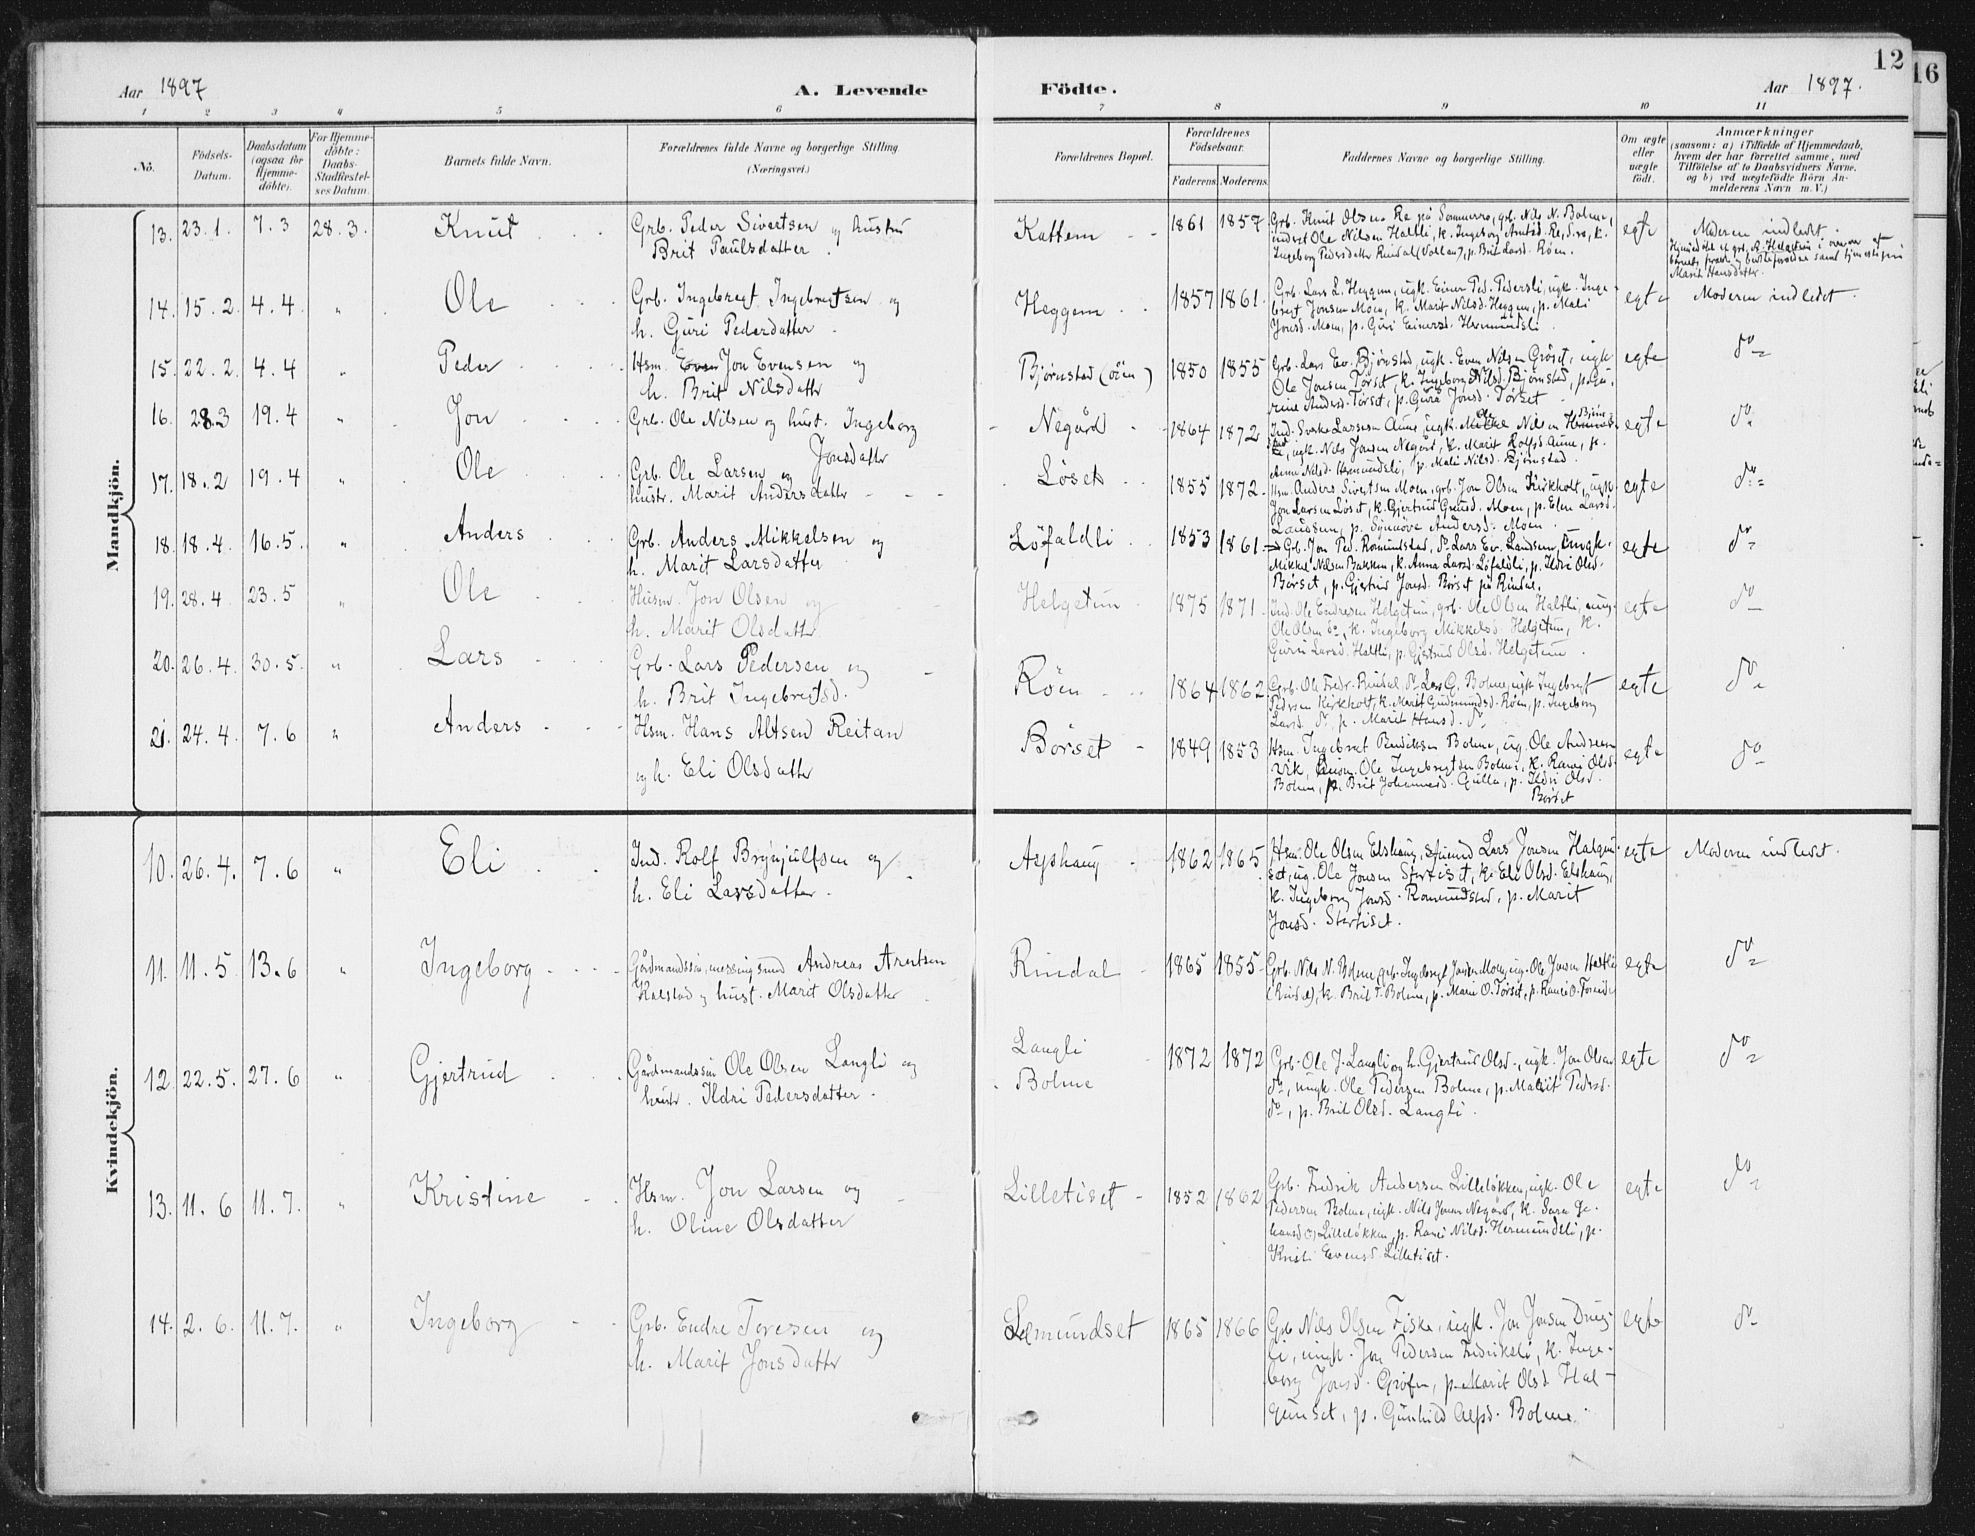 Aar 1897 A. Levende Födte. Aar 1897. 12
16
1 2 3 4 5 6 7 8 9 10 11
No.
Födsels-Datum.
Daabsdatum (ogsaa for Hjemme-döbte).
For Hjemme-döbte: Daabs-Stadfæstel-ses Datum.
Barnets fulde Navn.
Forældrenes fulde Navne og borgerlige Stilling (Næringsvei.)
Forældrenes Bopæl.
Forældrenes Födselsaar.
Faderens Moderens
Faddernes Navne og borgerlige Stilling.
Om ægte eller uægte födt.
Anmærkninger
(saasom: a) i Tilfælde af Hjemmedaab,
hvem der har forrettet samme, med
Tilföielse af to Daabsvidners Navne.
og b) ved uægtefödte Börn An-
melderens Navn m. V.)
Mandkjön.
13. 23.1. 7.3 28.3. Knut Grb. Peder Sivertsen og hustru
Brit Paulsdatter. Kattem 1861 1857 Grb. Knut Olsen Ro på Sommerro, grb. Nils N. Bolme,
Ole Nilsen Haltli, k. Ingeborg
Ingeborg Pedersdatter Rindal p. Brit Larsd. Røen. egte Moderen indledet.
Marit Hansdatter.
14. 15.2. 4.4. " Ole Grb. Ingebregt Ingebregtsen og
h. Guri Pedersdatter. Heggem 1857 1861. Grb. Lars L. Heggem, ugk. Einer Ped. Pedersli, ugk. Inge-
bregt Jonsen Moen, k. Marit Nilsd. Heggem, p. Mali
Jonsd. Moen, p. Guri Einersd. Hermundsli. egte Moderen indledet.
15. 22.2. 4.4 " Peder Hsm. Even Jon Evensen og
h. Brit Nilsdatter Bjørnstad (øien) 1850 1855 Grb. Lars Ev. Bjørnstad, ugk. Even Nilsen Grøset, ugk
Ole Jonsen Tørset, k. Ingeborg Nilsd. Bjørnstad, p. Gu-
rine Andersd. Tørset, p. Guru Jonsd. Tørset egte do
16. 28.3 19.4 " Jon Grb. Ole Nilsen og hust. Ingeborg
Jonsdatter Negård 1864 1872 Ind. Sivert Larssen Aune, ugk. Ole Nilsen
ugk. Nils Jonsen Negård, k. Marit Rolfsd. Aune, p.
Anne Nilsd. Hermundsli, p. Mali Nilsd. Bjørnstad. egte do
17. 18.2 19.4 " Ole Grb. Ole Larsen og
hustr. Marit Andersdatter Løset 1855 1872. Hsm. Anders Sivertsen Moen, grb. Jon Olsen Kirkholt, ugk.
Jon Larsen Løset, k. Gjertrud Gunusd. Moen, p. Elen Larsd.
Landsem, p. Synnøve Andersd. Moen. egte do
18. 18.4. 16.5. " Anders Grb. Anders Mikkelsen og
h. Marit Larsdatter Löfaldli 1853 1861. Grb. Jon Ped. Romundstad, do Lars Ev. Landsem, ungk.
Mikkel Nilsen Bakken, k. Anna Larsd. Løfaldli, p. Ildri Olsd.
Børset, p. Gjertrud Jonsd. Børset på Rindal. egte do
19. 28.4 23.5 " Ole Husm. Jon Olsen og
h. Marit Olsdatter Helgetun 1875 1871. Ind. Ole Endresen Helgetun, grb. Ole Olsen Haltli, ung.
Ole Olsen do, k. Ingeborg Mikkelsd. Helgetun, k.
Guru Larsd. Haltli, p. Gjertrud Olsd. Helgetun. egte do
20. 26.4. 30.5. " Lars Grb. Lars Pedersen og
h. Brit Ingebregtsd. Röen 1864 1862 Grb. Ole Fredr. Rindal, do Lars G. Bolme, ugk Ingebregt
Pedersen Kirkholt, k. Marit Gudmundsd. Røen, p. Ingeborg
Larsd. do, p. Marit Hansd. do egte do
21. 24.4. 7.6 " Anders Hsm. Hans Altsen Reitan
og h. Eli Olsdatter Börset 1849 1853 Hsm. Ingebregt Bendiksen Bolme, ug. Ole Andresen
Vik, Ole Ingebregtsen Bolme, k. Ranei Olsd.
Bolme, p. Brit Johannesd. Gulla, p. Ildri Olsd.
Børset egte do
Kvindekjön.
10. 26.4. 7.6 " Eli Ind. Rolf Brynjulfsen og
h. Eli Larsdatter. Aspshaug 1862 1865 Hsm. Ole Olsen Elshaug, Lars Jonsen Halgun-
set, ug. Ole Jonsen Stortiset, k. Eli Olsd. Elshaug,
k. Ingeborg Jonsd. Romundstad, p. Marit
Jonsd. Stortiset. egte Moderen indledet.
11. 11.5 13.6 " Ingeborg Gårdmandssøn, messingsmed Andreas Arntsen
Kalstad og hust. Marit Olsdatter Rindal 1865 1855 Grb. Nils N. Bolme, grb. Ingebregt Jonsen Moen, ug. Ole Jonsen Haltli
(Rindal), k. Brit T. Bolme, p. Marie O. Tørset, p. Ranei O. egte do
12. 22.5. 27.6 " Gjertrud Gårdmandssøn Ole Olsen Langli og
hustr. Ildri Pedersdatter. Langli
Bolme 1872 1872 Grb. Ole J. Langli og h. Gjertrud Olsd., ugk. Jon Olsen
do, ungk. Ole Pedersen Bolme, p. Marit Pedersd.
do, p. Brit Olsd. Langli. egte do
13. 11.6 11.7. " Kristine Hsm. Jon Larsen og
h. Oline Olsdatter Lilletiset 1852 1862 Grb. Fredrik Andersen Lilleløkken, ugk. Ole
Pedersen Bolme, ugk. Nils Jonsen Negård, k. Sara Jo-
hansd (?) Lilleløkken, p. Ranei Nilsd. Hermundsli, p.
Kristi Evensd. Lilletiset. egte do
14. 2.6. 11.7. " Ingeborg Grb. Endre Toresen og
h. Marit Jonsdatter Læmundset 1865 1866 Grb Nils Olsen Fiske, ugk. Jon Jonsen Drug-
li, ungk. Jon Pedersen Fredriksli, k. Inge-
borg Jonsd. Gröfte, p. Marit Olsd. Hal-
gunset, p. Gunhild Alfsd. Bolme. egte do